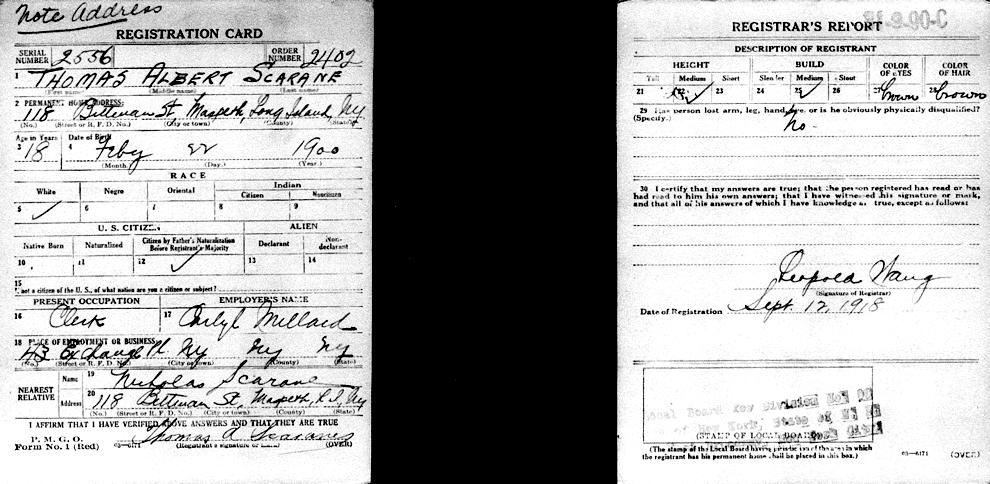 Note Address
REGISTRATION CARD
SERIAL NUMBER 2556 ORDER NUMBER 2402
1 THOMAS ALBERT SCARANE
(First name) (Middle name) (Last name)
2 PERMANENT HOME ADDRESS:
118 Bittman St, Maspeth, Long Island, Ny
(No.) (Street or R. F. D. No.) (City or town) (County) (State)
Age in Years Date of Birth
3 18 4 Feby 22 1900
(Month.) (Day.) (Year.)
RACE
White Negro Oriental Indian
Citizen Noncitizen
5 ✓ 6 7 8 9
U. S. CITIZEN ALIEN
Native Born Naturalized Citizen by Father's Naturalization Before Registrant's Majority Declarant Non-declarant
10 11 12 ✓ 13 14
15
If not a citizen of the U. S., of what nation are you a citizen or subject?
PRESENT OCCUPATION EMPLOYER'S NAME
16 Clerk 17 Carlyl Millard
18 PLACE OF EMPLOYMENT OR BUSINESS:
43 Exchange Pl Ny Ny Ny
(No.) (Street or R. F. D. No.) (City or town) (County) (State)
NEAREST RELATIVE Name 19 Nicholas Scarane
Address 20 118 Bittman St, Maspeth, L I, Ny
(No.) (Street or R. F. D. No.) (City or town) (County) (State)
I AFFIRM THAT I HAVE VERIFIED ABOVE ANSWERS AND THAT THEY ARE TRUE
P. M. G. O.
Form No. 1 (Red) 03—6171 Thomas A Scarane
(Registrant's signature or mark) (OVER)
REGISTRAR'S REPORT
DESCRIPTION OF REGISTRANT
HEIGHT BUILD COLOR OF EYES COLOR OF HAIR
Tall Medium Short Slender Medium Stout
21 22 ✓ 23 24 25 ✓ 26 27 brown 28 brown
29 Has person lost arm, leg, hand, eye, or is he obviously physically disqualified?
(Specify.) No.
30 I certify that my answers are true; that the person registered has read or has
had read to him his own answers; that I have witnessed his signature or mark,
and that all of his answers of which I have knowledge are true, except as follows:
Leopold Haug
(Signature of Registrar)
Date of Registration Sept. 12, 1918
Local Board
New York, State of
(STAMP OF LOCAL BOARD)
(The stamp of the Local Board having jurisdiction of the area in which
the registrant has his permanent home shall be placed in this box.)
03—6171 (OVER)